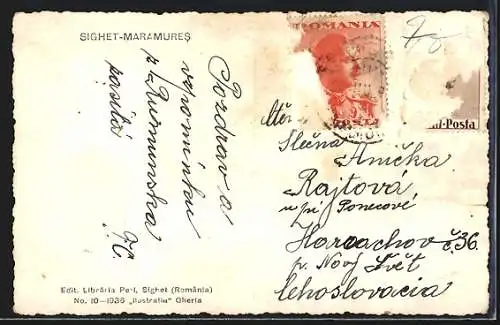 SIGHET-MARAMUREȘ
Pozdrav a
vzpomínku
z Rumunska
posílá
ROMANIA
POSTA
ul-Posta
Slečna
Anička
Rajtová
u pí Ponecové
Horcachov č. 36.
p. Nový Svět
Cehoslovacia
Edit. Librăria Perl, Sighet (România)
No. 10-1936 „Ilustratia" Gherla